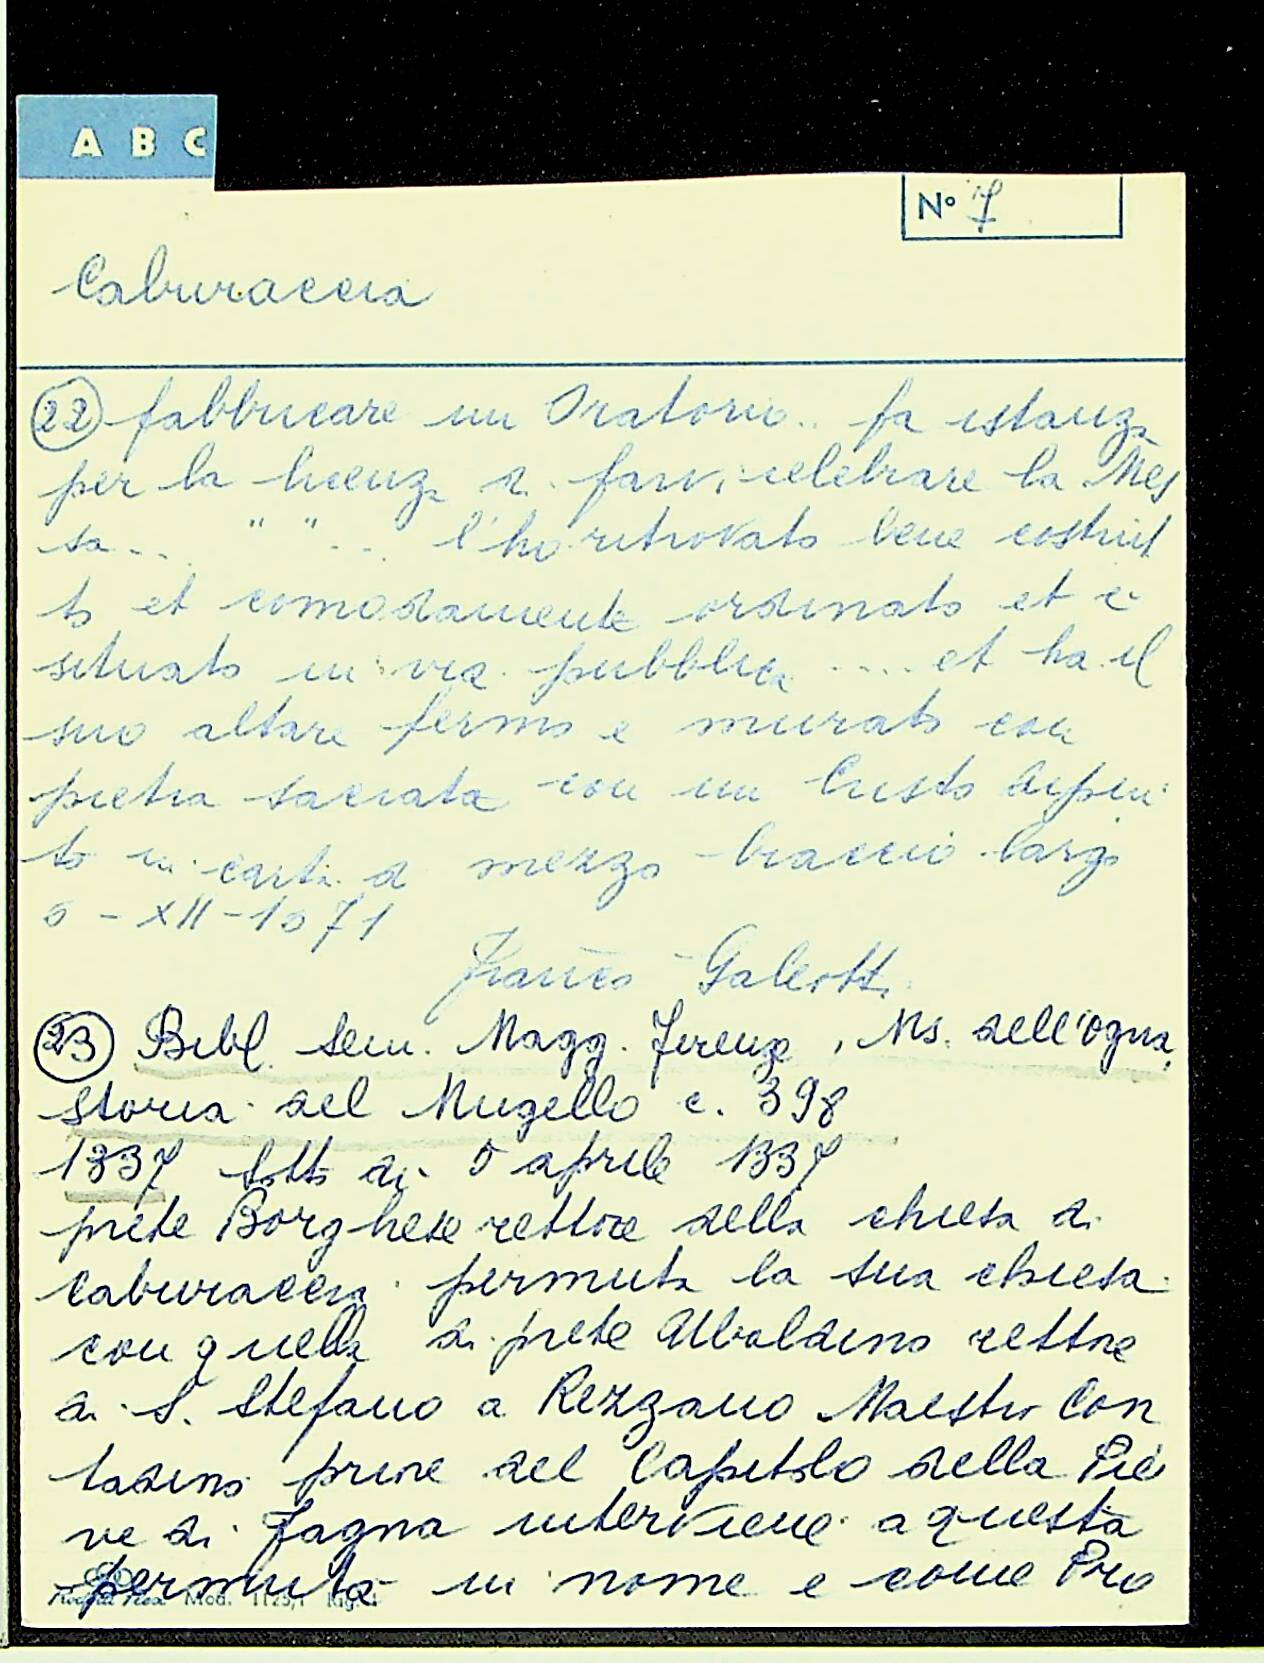 A B C
N° 7
Caburaccia
22 fabbricare un Oratorio.. fa istanza
per la licenza di farvi celebrare la Mes
sa... " " ... l'ho ritrovato bene costruit
to et comodamente ordinato et è
situato in via pubblica .... et ha il
suo altare fermo e murato con
pietra sacrata con un Cristo dipin
to in carta di mezzo braccio largo
5-XII-1671
Franco Galeotti
23 Bibl. Sem. Magg. Firenze, Ms. dell'Ogna,
storia del Mugello c. 398
1337 sotto di 5 aprile 1337
prete Borghese rettore della chiesa di
Caburaccia permuta la sua chiesa
con quella di prete Ubaldino rettore
di S. Stefano a Rezzano Maestro Con
tadino priore del Capitolo della Pie
ve di Fagna interviene a questa
permuta in nome e come Pro
Mod. 1125/1